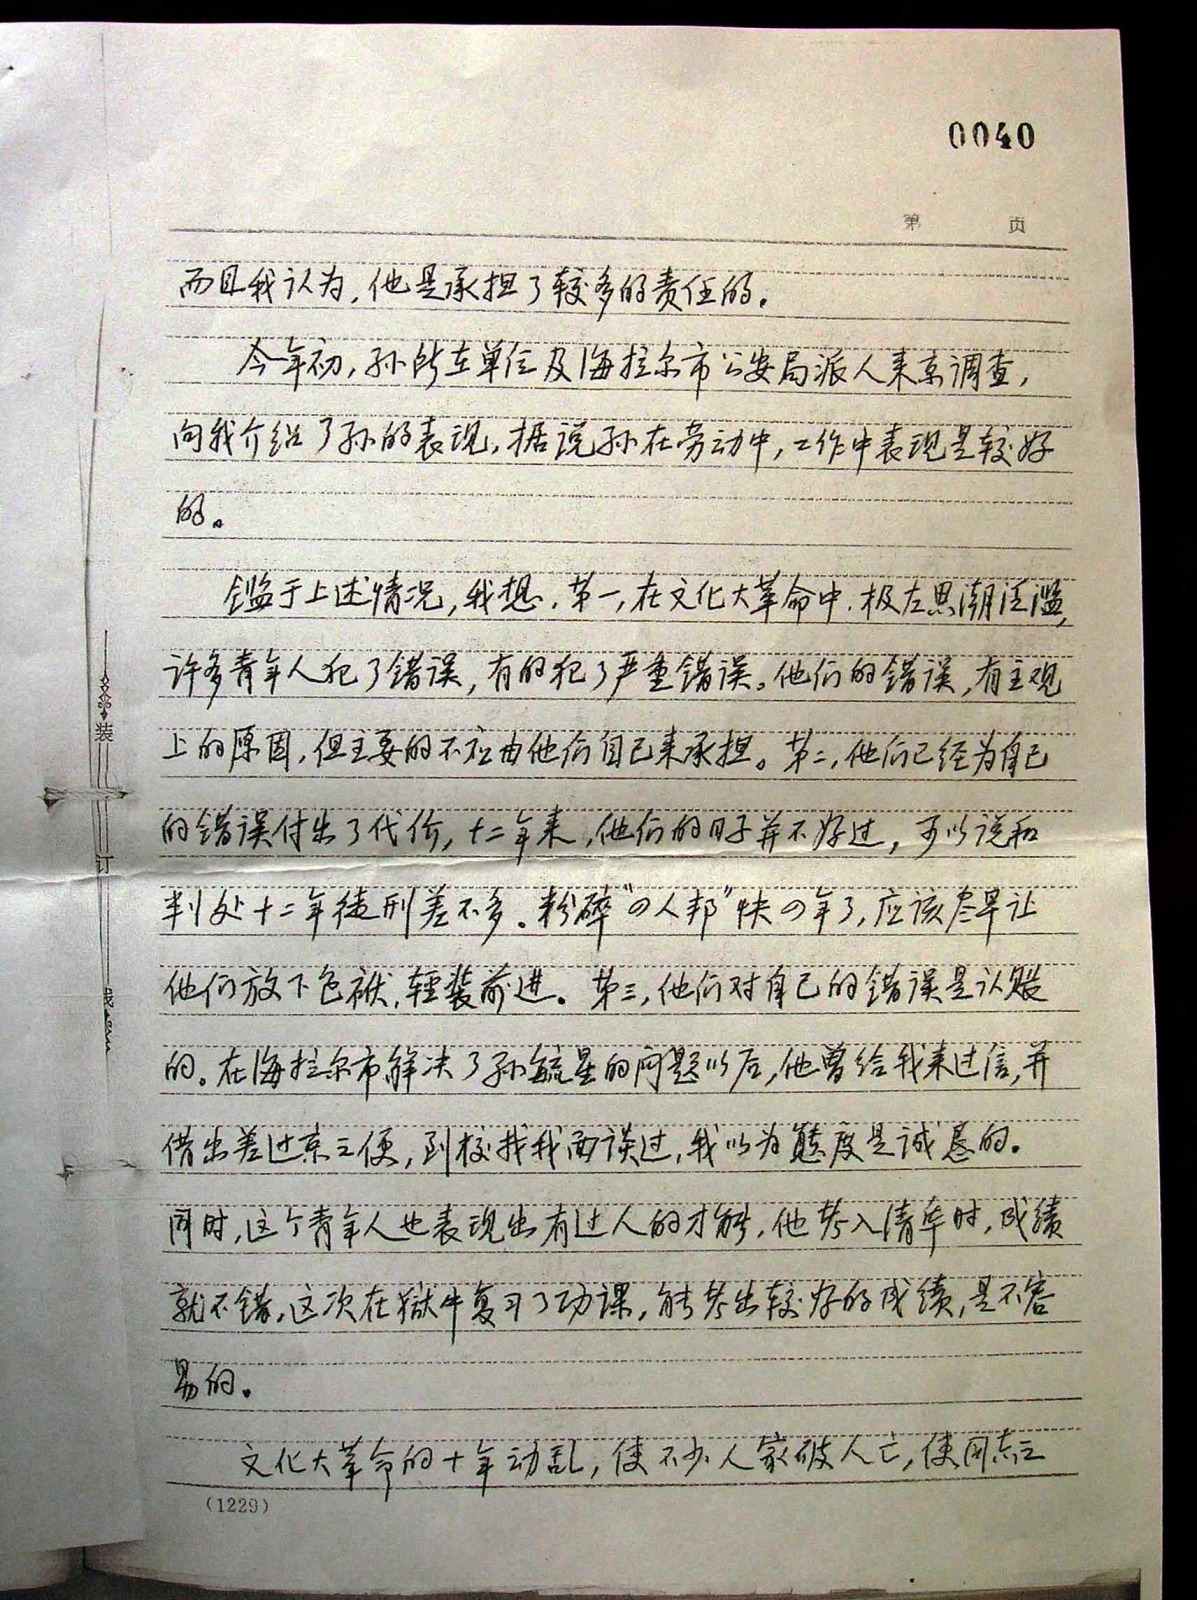 0040
第 页
而且我认为，他是承担了较多的责任的。
今年初，孙所在单位及海拉尔市公安局派人来京调查，
向我介绍了孙的表现，据说孙在劳动中，工作中表现是较好
的。
鉴于上述情况，我想，第一，在文化大革命中，极左思潮泛滥，
许多青年人犯了错误，有的犯了严重错误。他们的错误，有主观
上的原因，但主要的不应由他们自己来承担。第二，他们已经为自己
的错误付出了代价，十二年来，他们的日子并不好过，可以说和
判处十二年徒刑差不多。粉碎“四人邦”快四年了，应该尽早让
他们放下包袱，轻装前进。第三，他们对自己的错误是认账
的。在海拉尔市解决了孙毓星的问题以后，他曾给我来过信，并
借出差过京之便，到校找我面谈过，我以为态度是诚恳的。
同时，这个青年人也表现出有过人的才能，他考入清华时，成绩
就不错，这次在狱中复习了功课，能考出较好的成绩，是不容
易的。
文化大革命的十年动乱，使不少人家破人亡，使同志之
(1229)
装
订